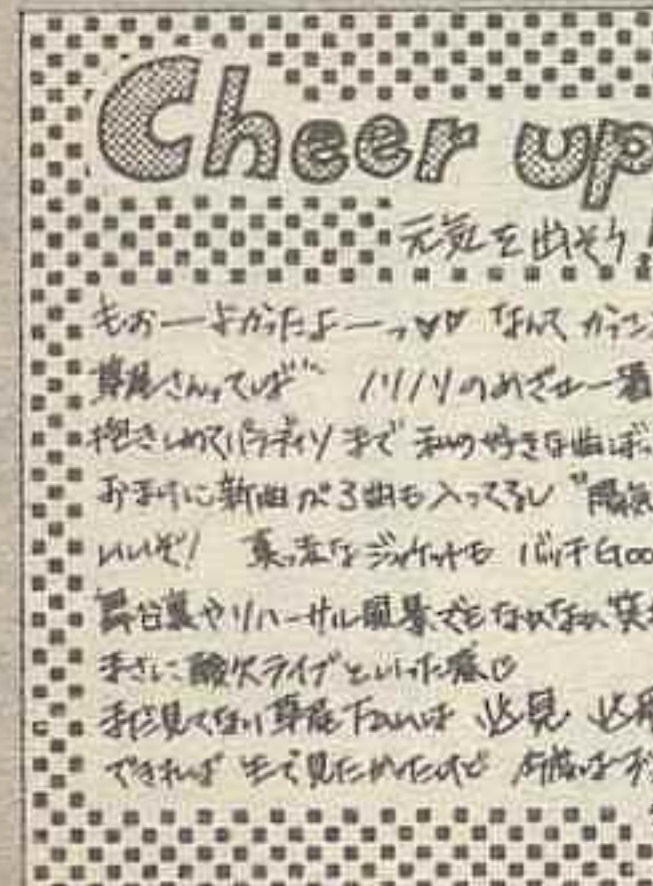 Cheer up
元気を出そう!
もぉーよかったよーっ♥♥ なんて かっこ
さんってば ノリノリのめざせ一番
抱きしめてパラディソまで 私の好きな曲ばっ
おまけに新曲が3曲も入ってるし "陽気
いいぞ! 真っ赤なジャケットも バッチGoo
舞台裏やリハーサル風景でもなかなか笑
まさに酸欠ライブといった感じ
まだ見てない ファンは 必見 必
できれば 生で見たかったけど